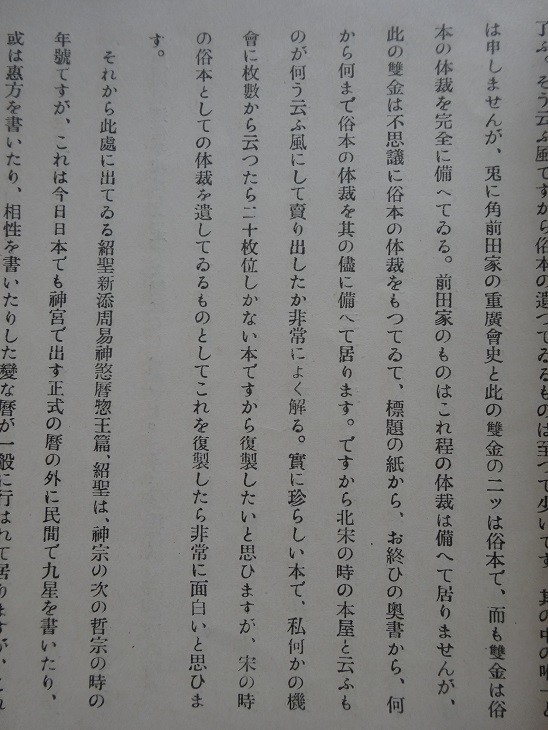 了ふ。そう云ふ風ですから俗本の遺つてゐるものは至つて少いです。其の中の唯一と
は申しませんが、兎に角前田家の重廣會史と此の雙金の二ッは俗本で、而も雙金は俗
本の体裁を完全に備へてゐる。前田家のものはこれ程の体裁は備へて居りませんが、
此の雙金は不思議に俗本の体裁をもつてゐて、標題の紙から、お終ひの奥書から、何
から何まで俗本の体裁を其の儘に備へて居ります。ですから北宋の時の本屋と云ふも
のが何う云ふ風にして賣り出したか非常によく解る。實に珍らしい本で、私何かの機
會に枚數から云つたら二十枚位しかない本ですから復製したいと思ひますが、宋の時
の俗本としての体裁を遺してゐるものとしてこれを復製したら非常に面白いと思ひま
す。
それから此處に出てゐる紹聖新添周易神煞暦惣王篇、紹聖は、神宗の次の哲宗の時の
年號ですが、これは今日日本でも神宮で出す正式の暦の外に民間で九星を書いたり、
或は惠方を書いたり、相性を書いたりした變な暦が一般に行はれて居りますが、これ